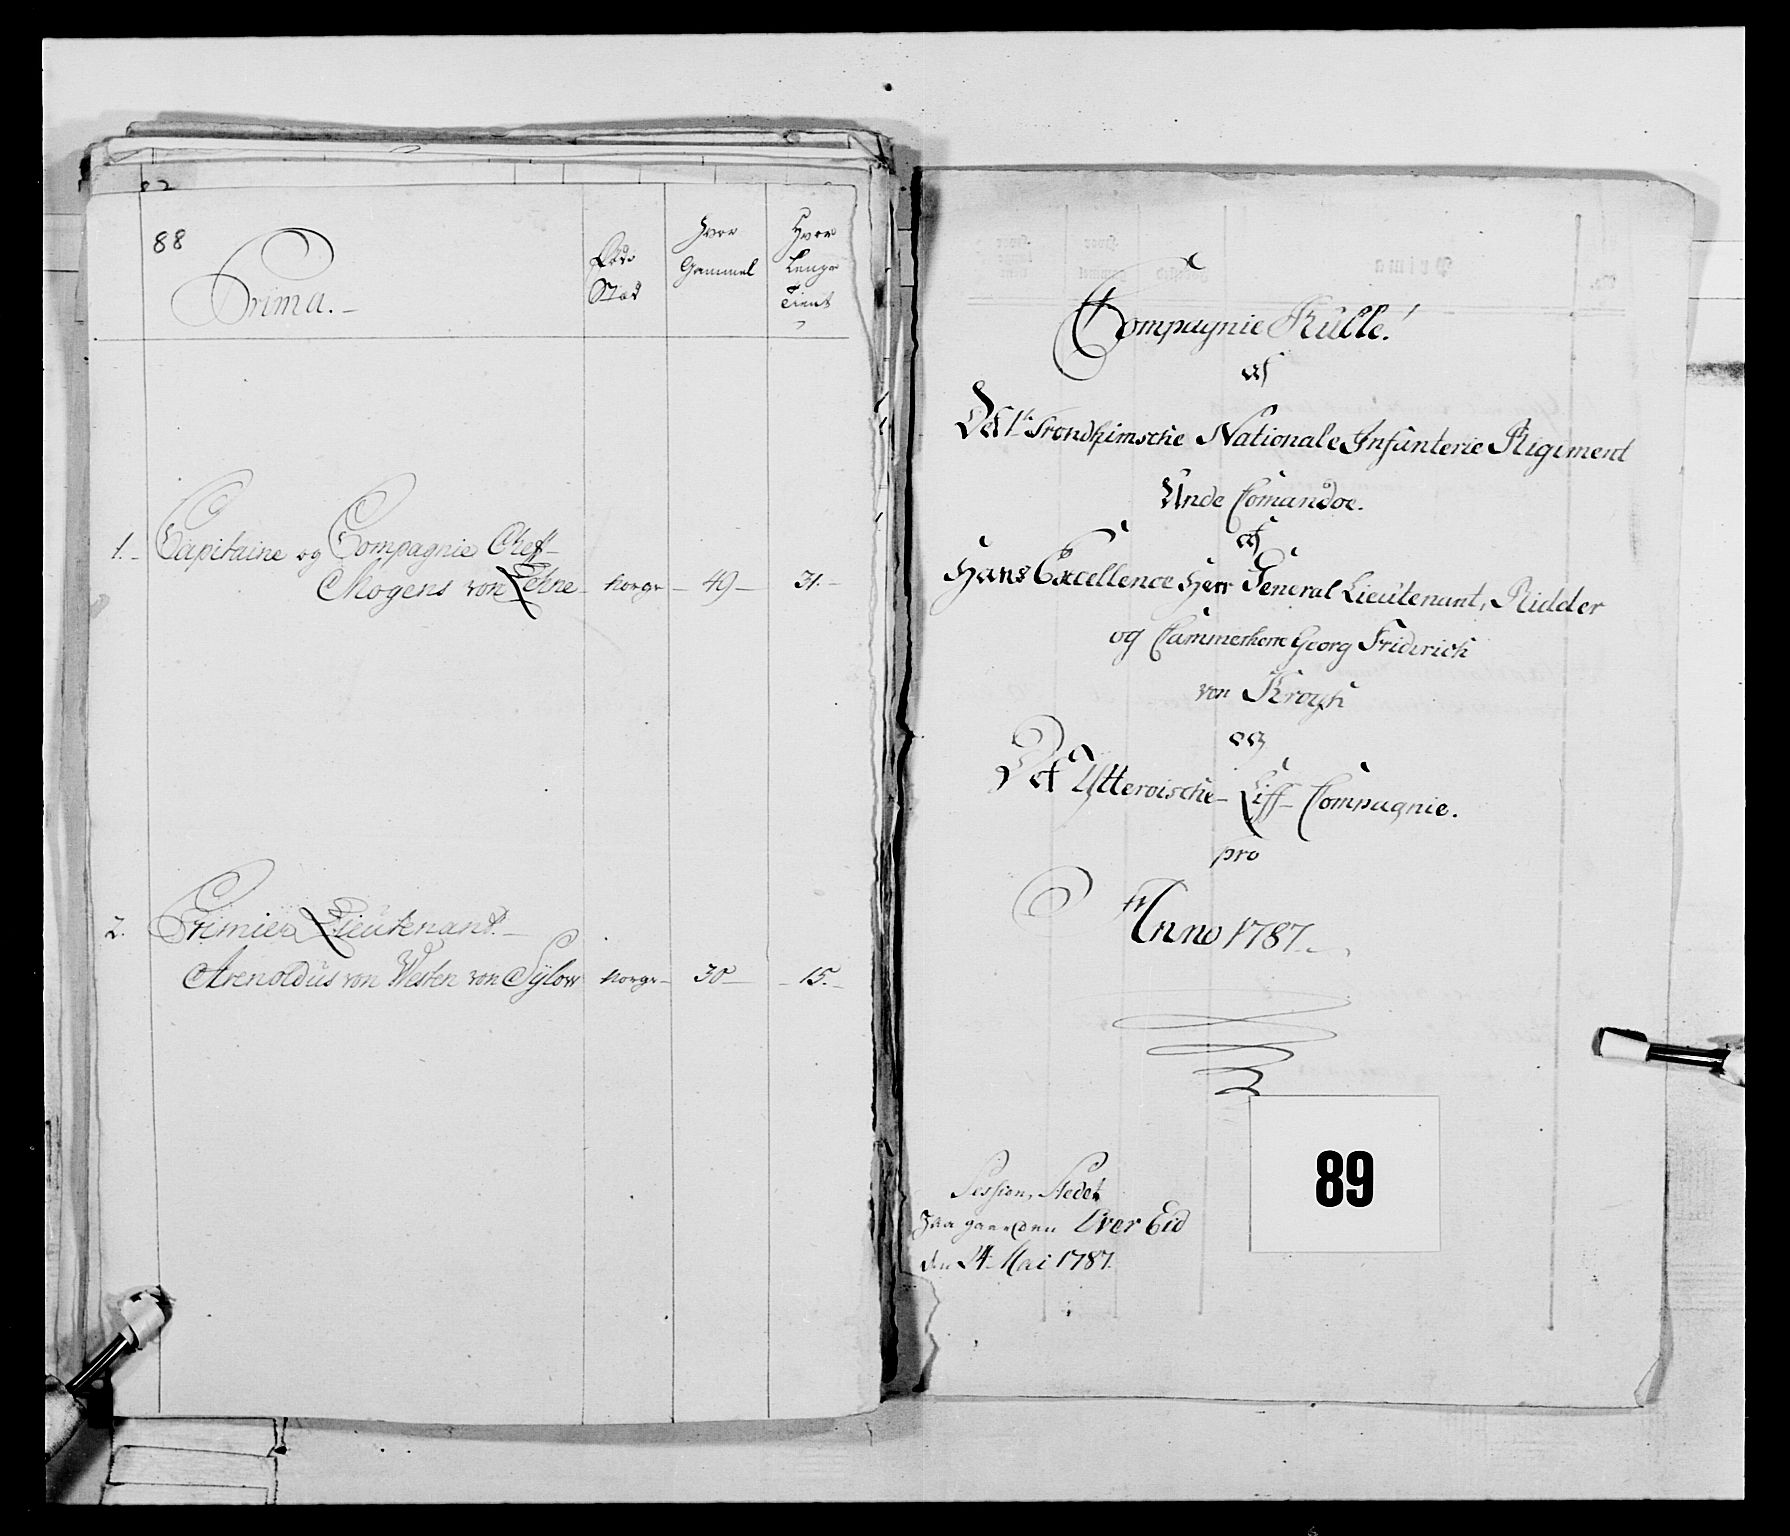 88
Prima.-
Føde Stæd
Hvor Gammel
Hvor Lenge Tient
1.- Capitaine og Compagnie Chef-
Mogens von Lehne - Norge - 49 - 31.-
2. Primier Lieutenant.-
Arenoldus von Westen von Sÿlow Norge - 30 - 15.-
Compagnie Rulle!
af
Det 1te Trondhimsche Nationale Infanterie Rigiment
Unde Comandoe.
af
Hans Excellence Herr General Lieutenant, Ridder
og Cammerherre Georg Friderich
von Krogh
og
Det Ÿtteroische Liff Compagnie.
pro
Anno 1787.
Session, Stedet
Paa gaarden Over Eid
den 24 Mai 1787.
89